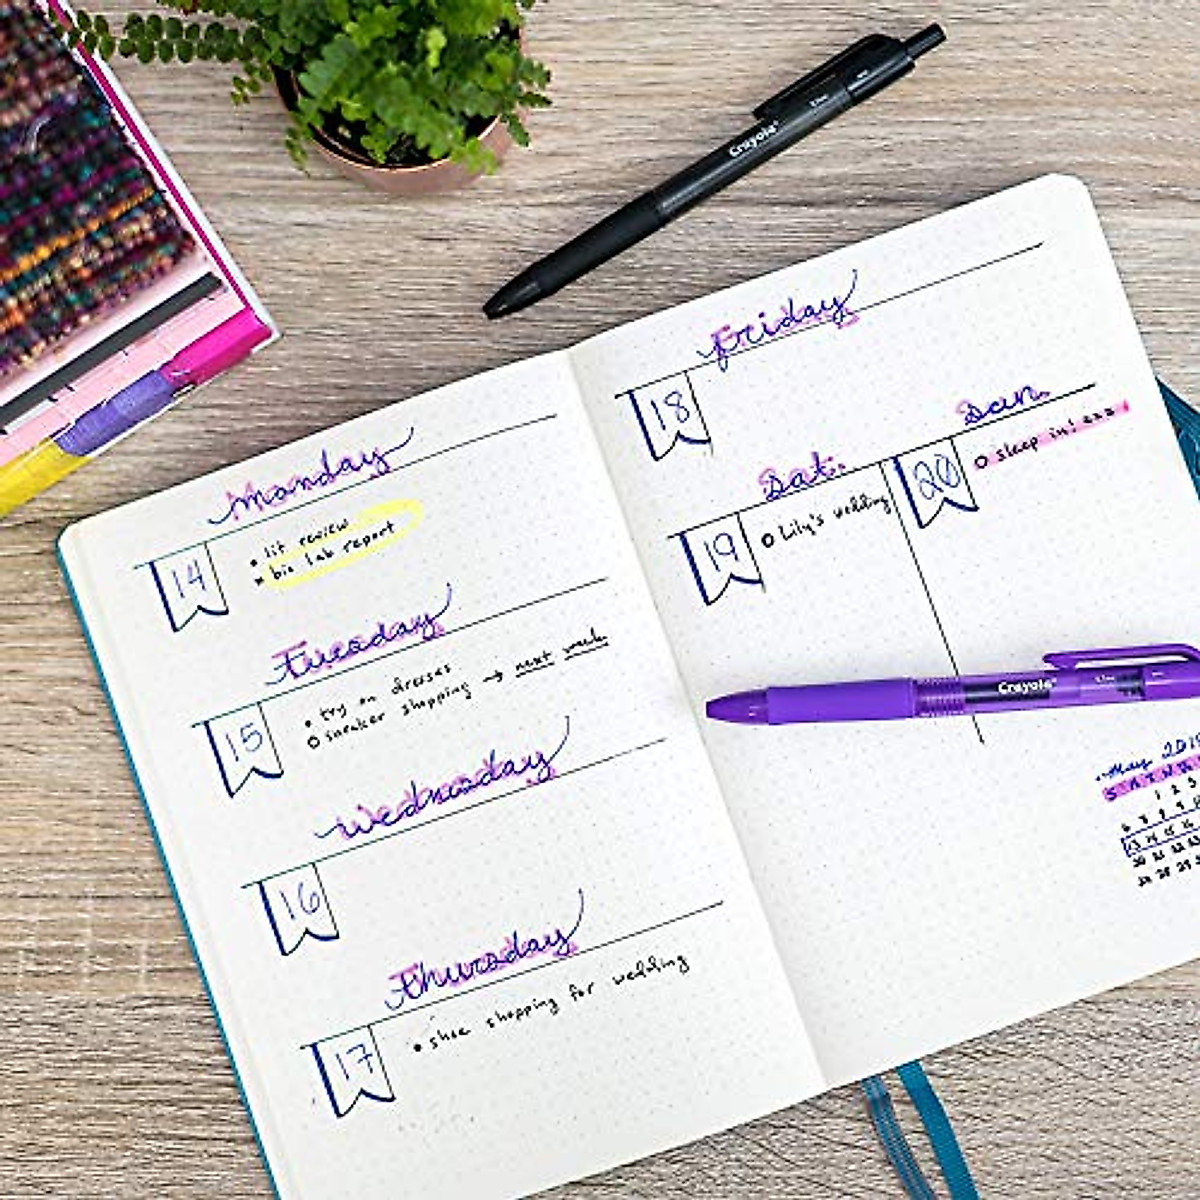 Monday
14
• lit review
× bio lab report
Tuesday
15
• try on dresses
o sneaker shopping → next week
Wednesday
16
Thursday
17
• shoe shopping for wedding
Friday
18
Sat.
19
o Lily's wedding
Sun.
20
o sleep in!
Crayola
Crayola
May 201
S M T W T
1 2 3
6 8 9
13 14 15 16
20 21 22 23
28 29